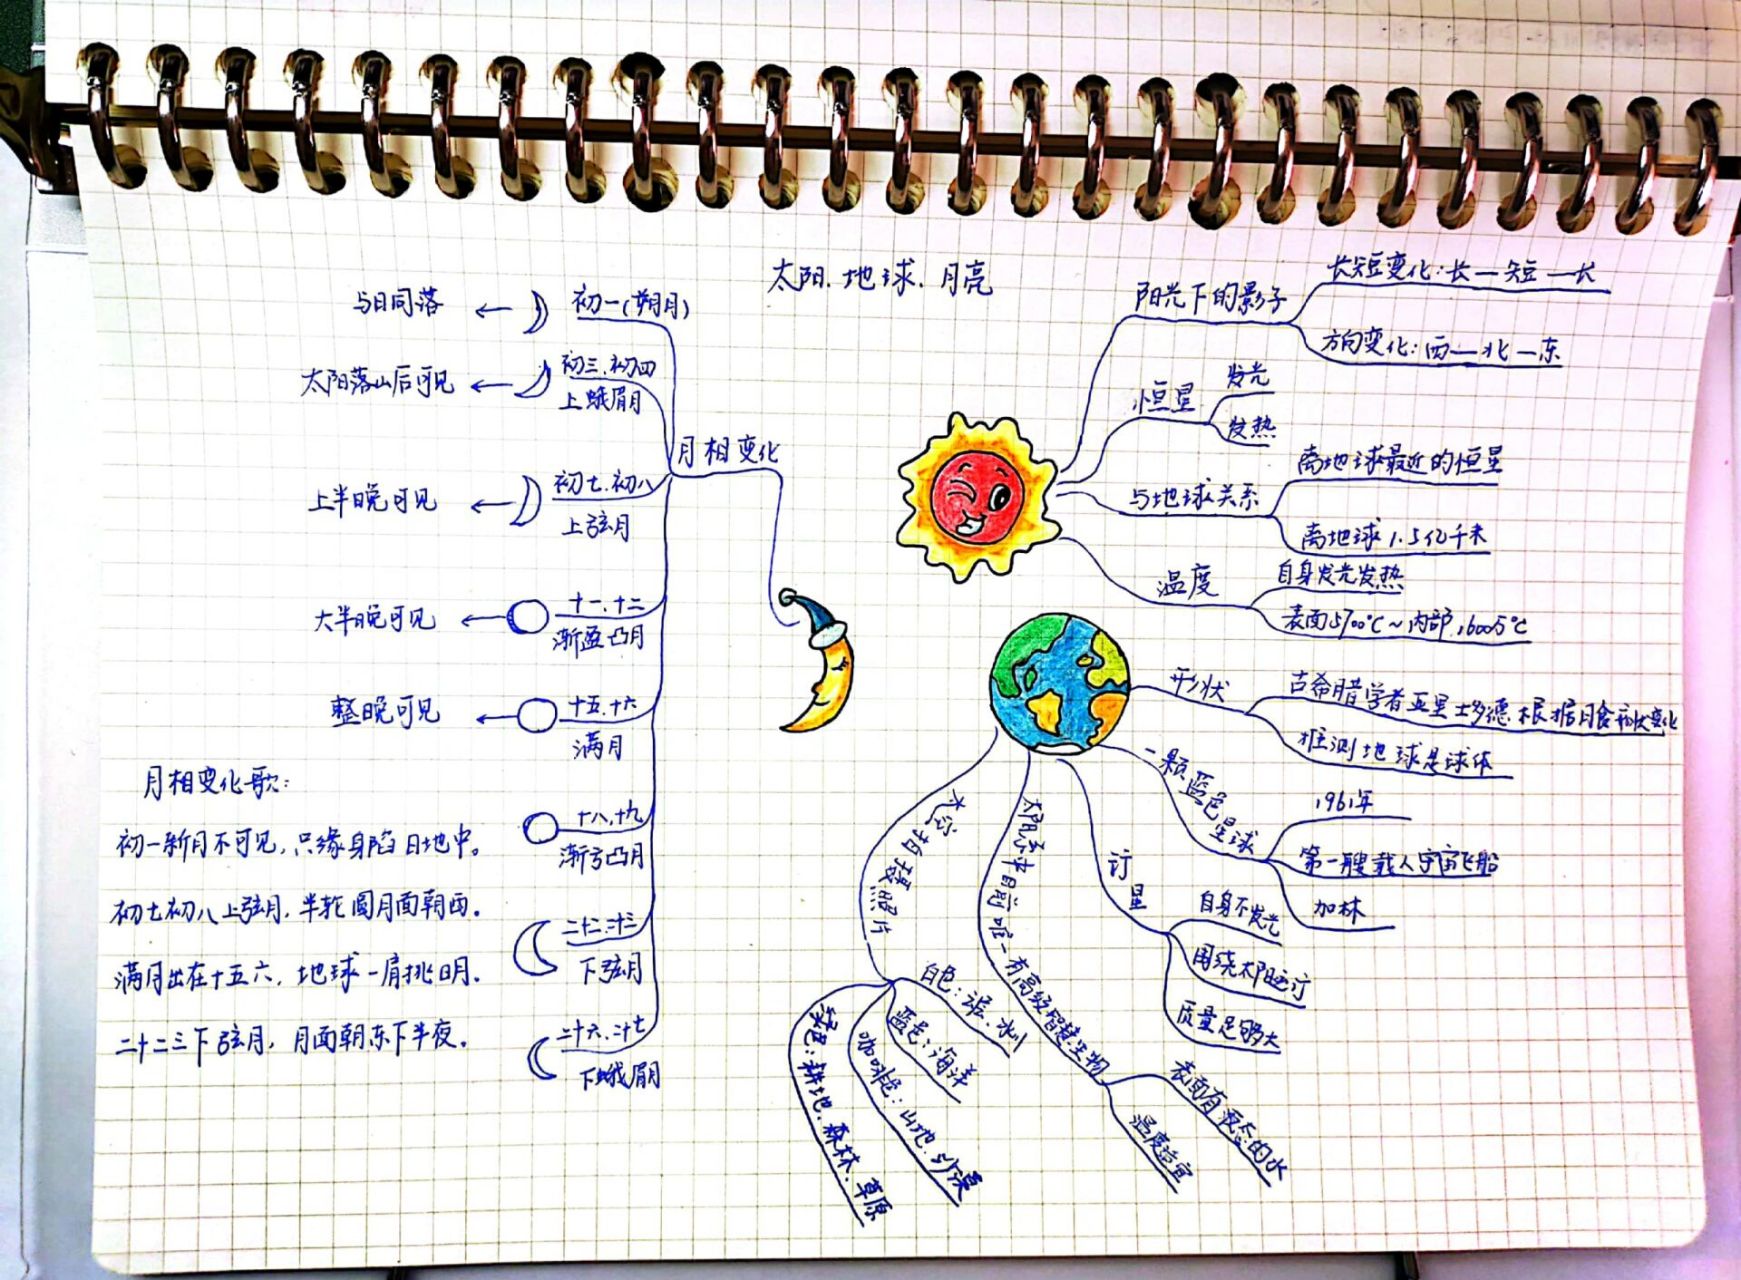 太阳.地球.月亮
与日同落 ← 初一(朔月)
太阳落山后可见 ← 初三.初四
上蛾眉月
上半晚可见 ← 初七.初八
上弦月
大半晚可见 ← 十一.十二
渐盈凸月
整晚可见 ← 十五.十六
满月
十八.十九
渐亏凸月
二十二.二十三
下弦月
二十六.二十七
下蛾眉月
月相变化
月相变化歌:
初一新月不可见,只缘身陷日地中。
初七初八上弦月,半轮圆月面朝西。
满月出在十五六,地球一肩挑日月.
二十二三下弦月,月面朝东下半夜。
阳光下的影子
长短变化:长一短一长
方向变化:西一北一东
恒星
发光
发热
与地球关系
离地球最近的恒星
离地球1.5亿千米
温度
自身发光发热
表面5700℃~内部
形状
古希腊学者亚里士多德根据月食形状变化
推测地球是球体
一颗蓝色星球
1961年
第一艘载人宇宙飞船
加林
行星
自身不发光
围绕太阳运行
质量足够大
太阳系中目前唯一有高级智慧生物
表面有液态的水
温度适宜
太空拍摄照片
白色:云层.冰川
蓝色:海洋
咖啡色:山地.沙漠
绿色:耕地.森林.草原